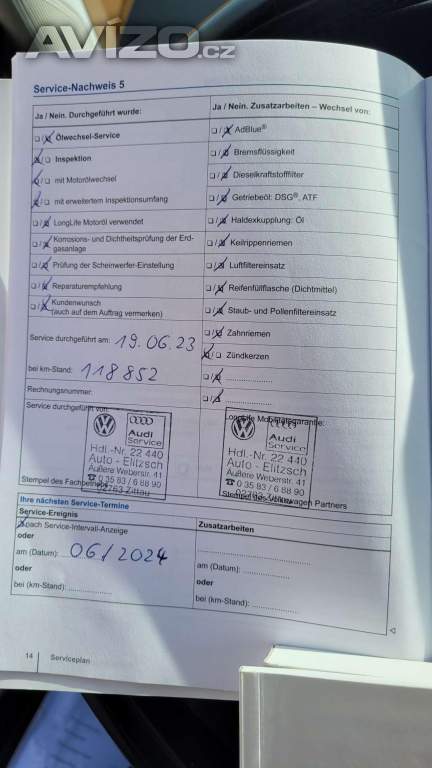 AVÍZO.cz
Service-Nachweis 5
Ja / Nein. Durchgeführt wurde:
Ölwechsel-Service
Inspektion
mit Motorölwechsel
mit erweitertem Inspektionsumfang
LongLife Motoröl verwendet
Korrosions- und Dichtheitsprüfung der Erd-
gasanlage
Prüfung der Scheinwerfer-Einstellung
Reparaturempfehlung
Kundenwunsch
(auch auf dem Auftrag vermerken)
Service durchgeführt am: 19.06.23
bei km-Stand: 118852
Rechnungsnummer:
Service durchgeführt von:
Audi
Service
Hdl.-Nr. 22 440
Auto - Elitzsch
Äußere Weberstr. 41
☎ 0 35 83 / 6 88 90
02763 Zittau
Stempel des Fachbetriebs
Ja / Nein. Zusatzarbeiten – Wechsel von:
AdBlue®
Bremsflüssigkeit
Dieselkraftstofffilter
Getriebeöl: DSG®, ATF
Haldexkupplung: Öl
Keilrippenriemen
Luftfiltereinsatz
Reifenfüllflasche (Dichtmittel)
Staub- und Pollenfiltereinsatz
Zahnriemen
Zündkerzen
LongLife Mobilitätsgarantie:
Audi
Service
Hdl.-Nr. 22 440
Auto - Elitzsch
Äußere Weberstr. 41
☎ 0 35 83 / 6 88 90
02763 Zittau
Stempel des Volkswagen Partners
Ihre nächsten Service-Termine
Service-Ereignis
nach Service-Intervall-Anzeige
oder
am (Datum): 06/2024
oder
bei (km-Stand):
Zusatzarbeiten
am (Datum):
oder
bei (km-Stand):
14 Serviceplan